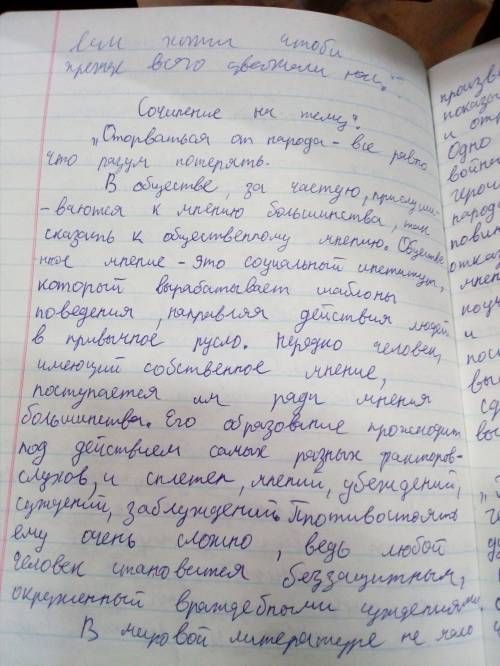 Вам хотим чтобы
прежде всего уважали нас."
Сочинение на тему:
„Оторваться от народа - все равно
что разум потерять.
В обществе, за частую, прислуши-
-ваются к мнению большинства, так
сказать к общественному мнению. Обществе
нное мнение - это социальный институт,
который вырабатывает шаблоны
поведения, направляя действия людей
в привычное русло. Нередко человек,
имеющий собственное мнение,
поступается им ради мнения
большинства. Его образование происходит
под действием самых разных факторов-
слухов, и сплетен, мнений, убеждений,
суждений, заблуждений. Противостоять
ему очень сложно, ведь любой
человек становится беззащитным,
окруженный враждебными суждениями.
В мировой литературе не мало
произв
показа
и отр
Одно
война
герои
народа
повли
отказ
мнен
поуч
и
посл
выс
сд
вы